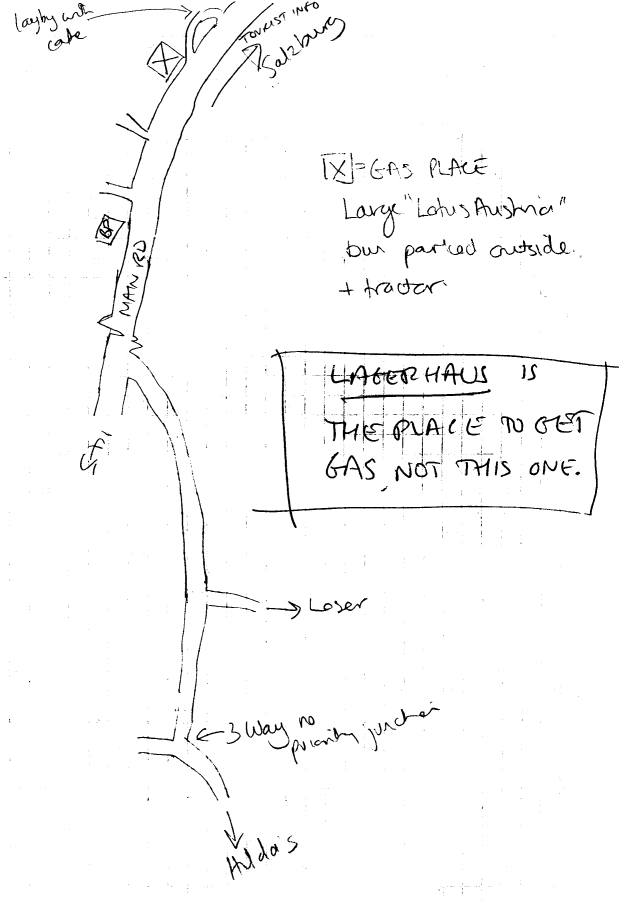 layby with
cafe
TOURIST INFO
Salzburg
X
X = GAS PLACE
Large "Lotus Austria"
bus parked outside
+ tractor
BP
MAIN RD
LAGERHAUS IS
THE PLACE TO GET
GAS, NOT THIS ONE.
Loser
3 Way no
priority junction
Hilda's